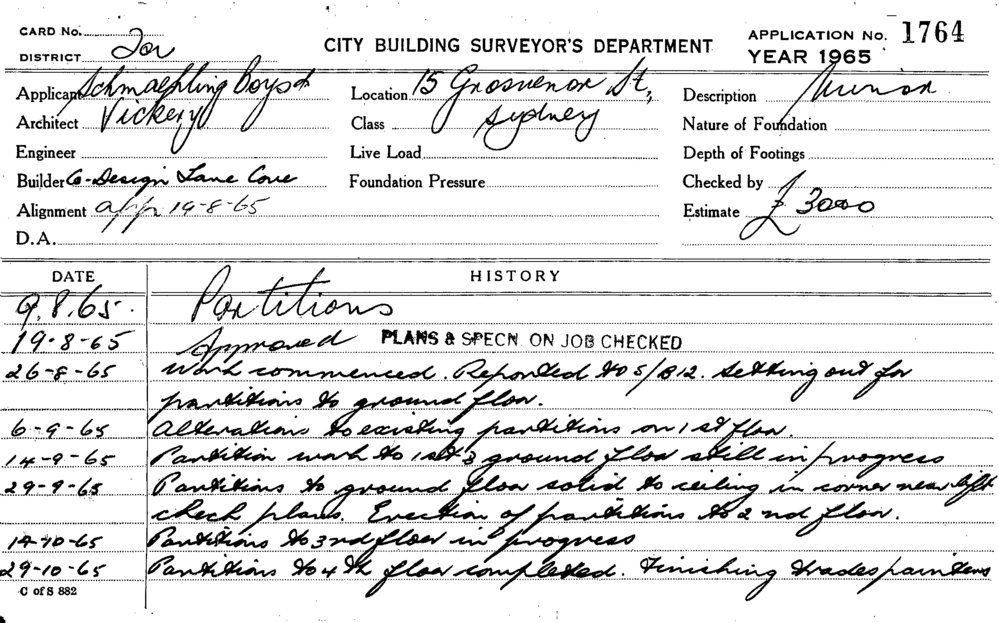 CARD No.
DISTRICT
CITY BUILDING SURVEYOR'S DEPARTMENT
APPLICATION No. 1764
YEAR 1965
Applicant Schmaehling Boys &
Location 15 Grosvenor St,
Description
Architect Vickery
Class Sydney
Nature of Foundation
Engineer
Live Load
Depth of Footings
Builder Co-Design Lane Cove
Foundation Pressure
Checked by
Alignment app 19-8-65
Estimate £ 3000
D.A.
DATE
HISTORY
9.8.65. Partitions
19-8-65 Approved PLANS & SPECN. ON JOB CHECKED
26-8-65 Work commenced. Reported to S/B 12. Setting out for
partitions to ground floor.
6-9-65 Alterations to existing partitions on 1st floor.
14-9-65 Partition work to 1st & ground floor still in progress
29-9-65 Partitions to ground floor solid to ceiling in corner near lift
check plans. Erection of partitions to 2nd floor.
14-10-65 Partitions to 3rd floor in progress
29-10-65 Partitions to 4th floor completed. Finishing trades painters
C of S 882